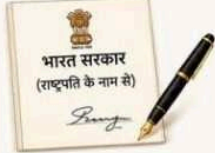 भारत सरकार
(राष्ट्रपति के नाम से)